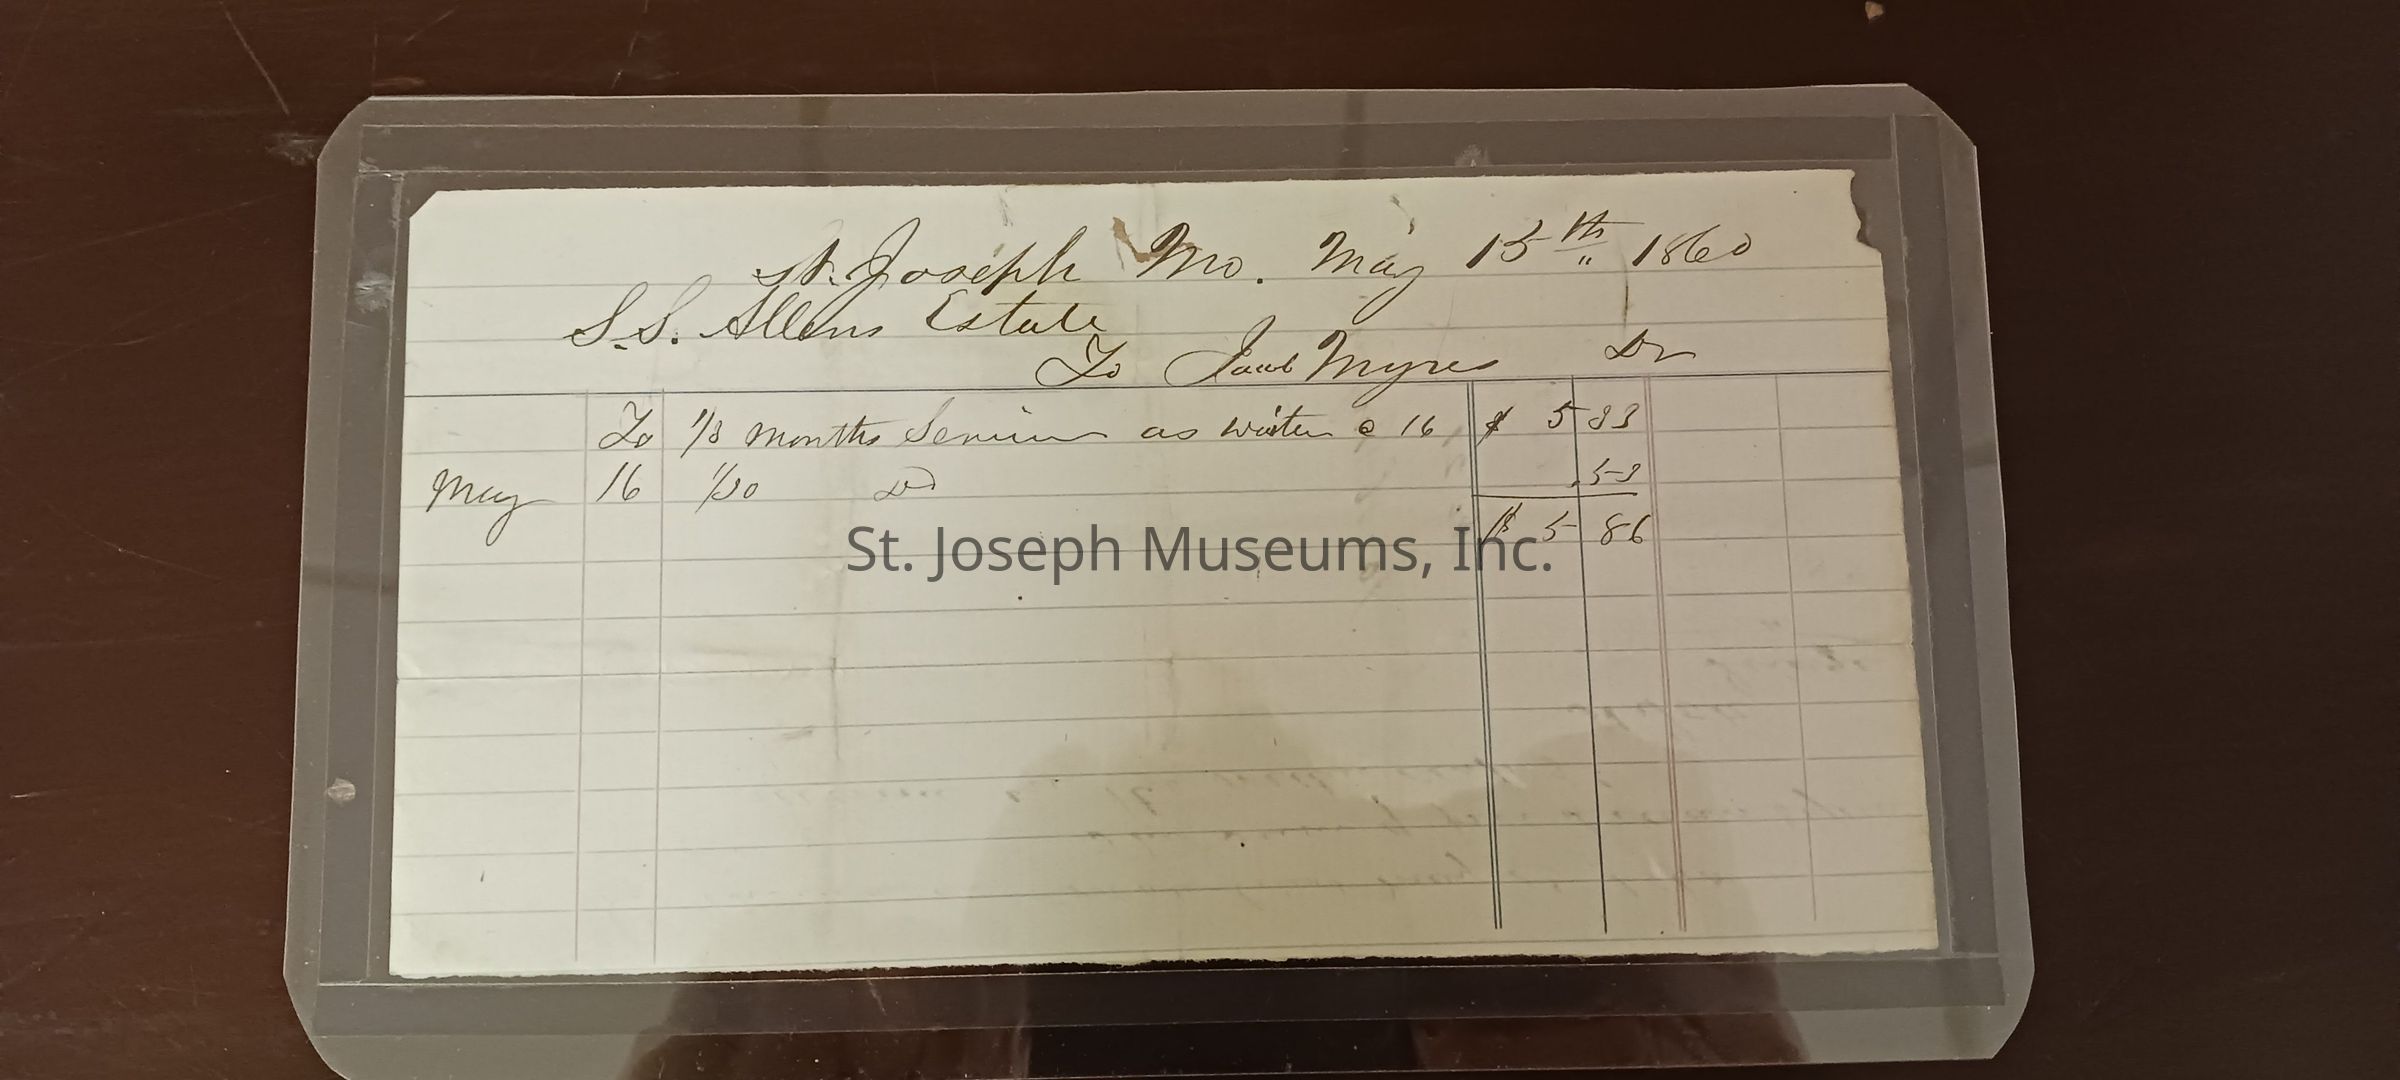 St. Joseph Mo. May 15th 1860
S.S. Allens Estate
To Jacob Myres Dr
To 1/3 months Services as waiter @ 16 $ 5 33
May 16 1/30 Do .53
$ 5 86
St. Joseph Museums, Inc.